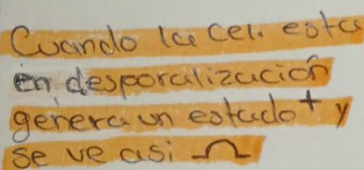 Cuando la cel. esta
en desporalización
genera un estado + y
se ve asi